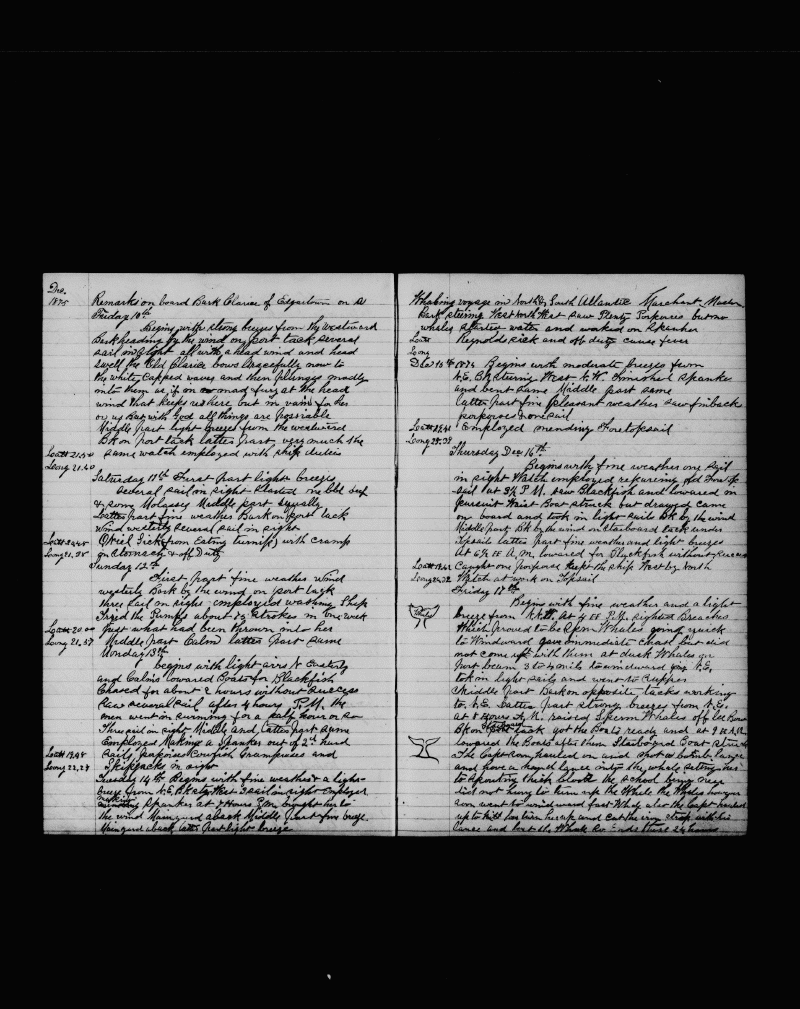 Dec.
1875
Remarks on board Bark Clarice of Edgartown on a
Friday 10th
Begins with strong breezes from the Westward
Bark heading by the wind on port tack several
sail in sight all with a head wind and head
swell the Old Clarice bows gracefully now to
the white capped waves and then plunges madly
into them as if in mad fury at the head
wind that keeps us here but in vain for her
or us but with God all things are possiable
Middle part light breezes from the westward
Bk on port tack latter part very much the
Latt 21.50 same watch employed with ship duties
Long 21.40
Saturday 11th First part light breezes
several sail in sight Started one bbl beef
& some Molasses Middle part squally
Latter part fine weather Bark on port tack
wind westerly several sail in sight
Latt Oriel Sick from Eating turnips with cramp
Long 21.38 in stomach & off Duty
Sunday 12th
First part fine weather wind
westerly Bark by the wind on port tack
three sail in sight employed washing Ship
Tried the Pumps about 75 strokes in one week
Latt 20.00 Just what had been thrown into her
Long 21.37 Middle part Calm latter part same
Monday 13th
begins with light airs & Easterly
and Calms lowered Boats for Blackfish
Chased for about 2 hours without success
Saw several sail after 4 hours P.M. the
men went in swimming for a half hour or so
Three sail in sight Middle and Latter part same
Employed Making a Spanker out of 2nd hand
Latt 19.48 Sails porpoises Cowfish Grampuses and
Long 22.24 Skipjacks in sight
Tuesday 14th Begins with fine weather & a light
breeze from N.E. Bk stg West 3 sail in sight Employed
making
Spanker at 7 Hours P.M. brought her to
the wind Mainyard aback Middle part fine breeze
Mainyard aback latter part light breeze
Whaling voyage in North & South Atlantic Marchant Master
Bark steering West North West Saw Plenty Porpoises but no
whales started water and worked on Spanker
Latt Reynolds sick and off duty cause fever
Long
Dec 15th 1875 Begins with moderate breezes from
N.E. Bk sturing West N.W. Finished Spanker
and bent same Middle part same
Latter part fine pleasant weather saw finback
porpoises & one sail
Latt Employed mending Foretopsail
Long
Thursday Dec 16th
Begins with fine weather one sail
in sight Watch employed repairing old Fore Top
sail at 3½ P.M. saw Blackfish and lowered in
pursuit Waist Boat struck but drawed came
on board and took in light sails Bk by the wind
Middle part Bk by the wind on Starboard tack under
Topsails latter part fine weather and light breezes
At 6½ A.M. lowered for Blackfish without success
Latt Caught one porpoise Kept the ship West by North
Long Watch at work on Topsail
Friday 17th
Begins with fine weather and a light
breeze from N.N.W. At 4 P.M. sighted Breaches
Which proved to be Sperm Whales going quick
to Windward gave immediate chase but did
not come up with them at dusk Whales on
port beam 3 to 4 miles to windward going N.E.
took in light sails and went to supper
Middle part Bark on opposite tacks working
to N.E. Latter part strong breezes from N.E.
at 7 Hours A.M. raised Sperm Whales off lee Beam
Starboard
Bk on tack got the Boats ready and at 9 A.M.
lowered the Boats after them Starboard Boat struck
The Captain hauled on and shot a bomb lance
and hove a hand lance into the whale setting him
to spouting thick blood the school being near
did not bring to turn up the Whale the Whales however
soon went to windward fast Whale also the Capt hauled
up to kill or turn him up and cut the iron strap with his
lance and lost the Whale So ends these 24 hours